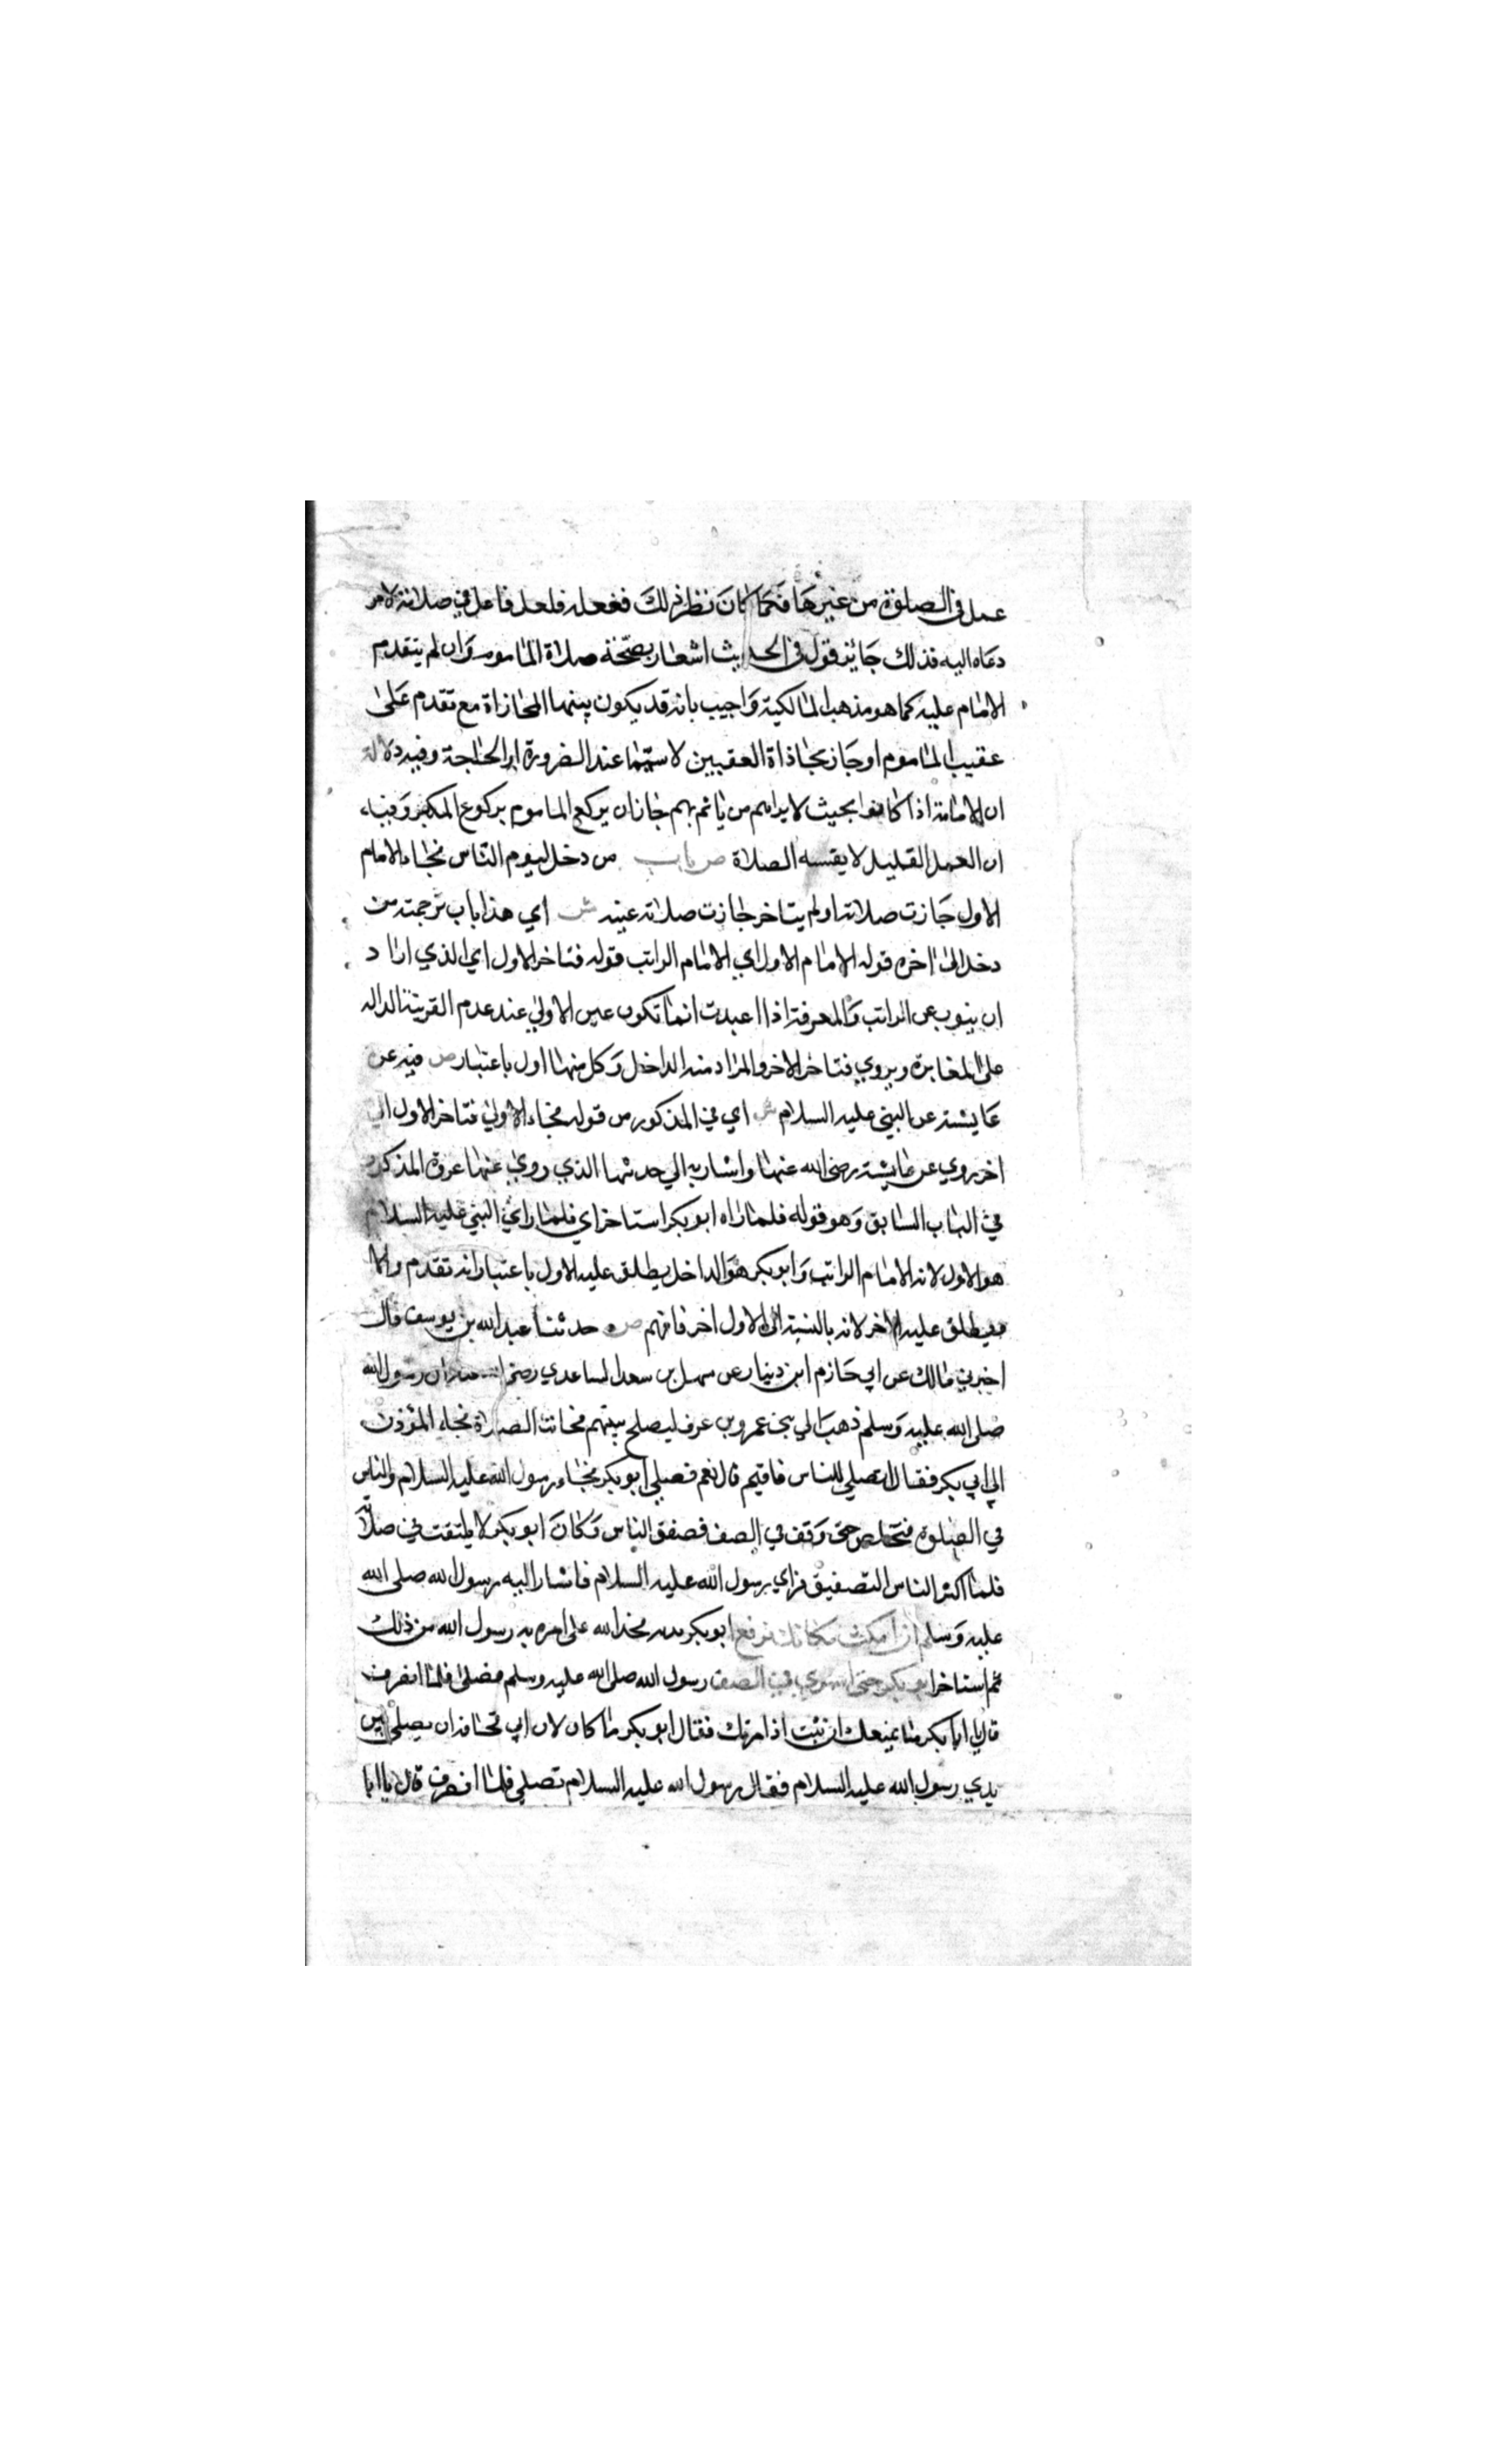 عمل في الصلوة من غيرها فكما كان نظر ذلك ففعله فلعل فاعل في صلاته لامر
دعاه اليه فذلك جائز قول في الحديث اشعار بصحة صلاة الماموم وان لم يتقدم
الامام عليه كما هو مذهب المالكية واجيب بانه قد يكون بينهما المحازاة مع تقدم على
عقيب الماموم او جاز بحاذاة العقبين لاسيما عند الضرورة او الحاجة وفيه دلالة
ان الامامة اذا كانوا بحيث لا يراهم من ياتم بهم جاز ان يركع الماموم بركوع المكبر وفيه
ان العمل القليل لا يفسد الصلاة ص باب من دخل ليوم الناس فجاء الامام
الاول جازت صلاته او لم يتاخر جازت صلاته عينه ش اي هذا باب ترجمته من
دخل الى اخره قوله الامام الاول اي الامام الراتب قوله فتاخر الاول اي الذي اراد
ان ينوب عن الراتب والمعرفة اذا اعيدت انما تكون عين الاولي عند عدم القرينة الداله
على المغايرة ويروي فتاخر الاخر والمراد منه الداخل وكل منهما اول باعتبار ص فيه عن
عايشة عن النبي عليه السلام ش اي في المذكور من قوله فجاء الاولي فتاخر الاول الي
اخر روي عن عايشة رضي الله عنها واشار به الي حديثها الذي روي عنها عروة المذكور
في الباب السابق وهو قوله فلما راه ابو بكر استاخر اي فلما راي النبي عليه السلام
هو الاول لانه الامام الراتب وابو بكر هو الداخل يطلق عليه الاول باعتبار انه تقدم وكما
يطلق عليه الاخر لانه بالنسبة الى الاول اخر فافهم ص حدثنا عبد الله بن يوسف قال
اخبرني مالك عن ابي حازم ابن دينار عن سهل بن سعد الساعدي رضي الله عنه ان رسول الله
صلى الله عليه وسلم ذهب الي بني عمرو بن عوف ليصلح بينهم فحانت الصلاة فجاء المؤذن
الي ابي بكر فقال اتصلي للناس فاقيم قال نعم فصلي ابو بكر فجاء رسول الله عليه السلام والناس
في الصلوة فتخلص حتى وقف في الصف فصفق الناس وكان ابو بكر لا يلتفت في صلاته
فلما اكثر الناس التصفيق فراي رسول الله عليه السلام فاشار اليه رسول الله صلى الله
عليه وسلم ان امكث مكانك فرفع ابو بكر يديه فحمد الله على امره به رسول الله من ذلك
ثم استاخر ابو بكر حتى استوي في الصف رسول الله صلى الله عليه وسلم فصلى فلما انصرف
قال يا ابا بكر ما يمنعك ان تثبت اذ امرتك فقال ابو بكر ما كان لابن ابي قحافة ان يصلي بين
يدي رسول الله عليه السلام فقال رسول الله عليه السلام تصلي فلما انصرف قال يا ابا